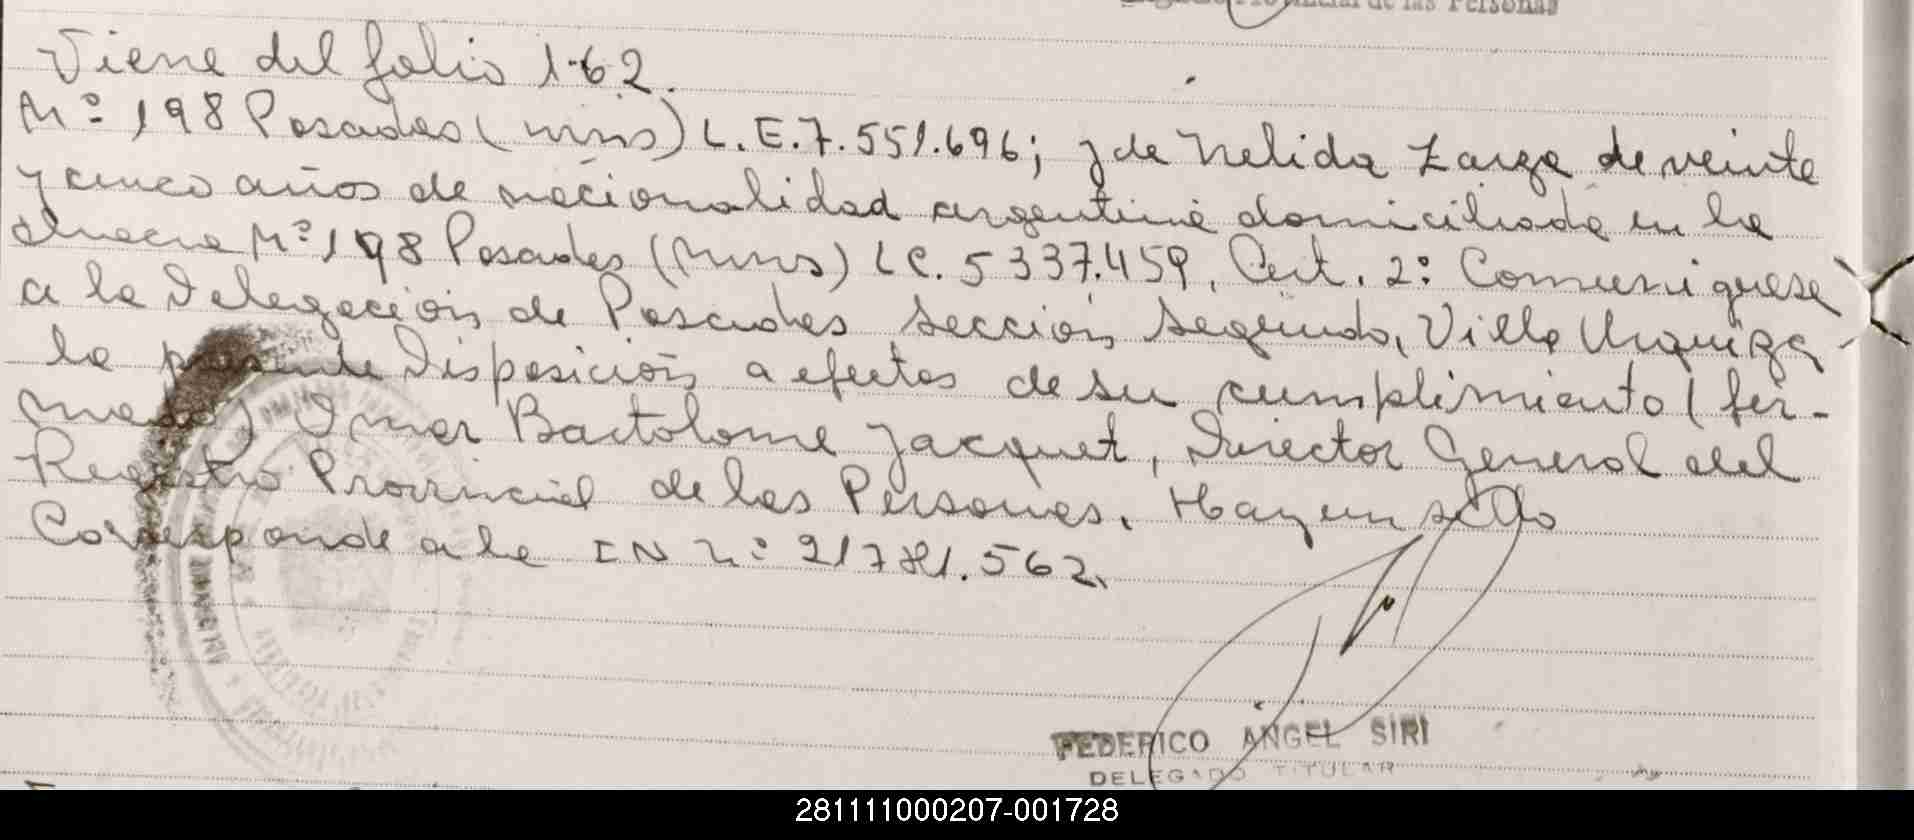 Registro Provincial de las Personas
Viene del folio 162.
Nº 198 Posadas (Mnes) L.E. 7.551.696; y de Nelida Zarza de veinte
y cinco años de nacionalidad argentina domiciliada en la
chacra Nº 198 Posadas (Mnes) LC. 5337.459, Art. 2º Comuniquese
a la Delegación de Posadas Sección Segunda, Villa Urquiza
la presente Disposición a efectos de su cumplimiento (fir-
mado) Omar Bartolome Jacquet, Director General del
Registro Provincial de las Personas. Hay un sello
Corresponde a la IN Nº 21781.562.
FEDERICO ANGEL SIRI
DELEGADO TITULAR
281111000207-001728